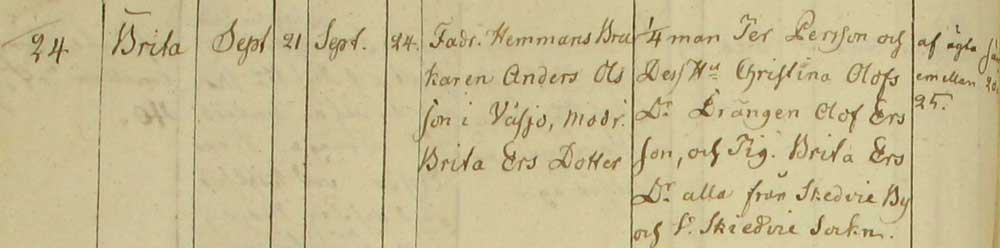 24 Brita Sept 21 Sept. 24. Fadr. Hemmans Bru
karen Anders Ols
son i Väsjo, Modr.
Brita Ers Dotter
1/4 man Per Persson och
Dess Hu Christina Olofs
Dr. Drängen Olof Ers
son, och Pig. Brita Ers
Dr. alla från Skedvie By
och St. Skiedvie Sockn.
af ägta
em ellan
25.